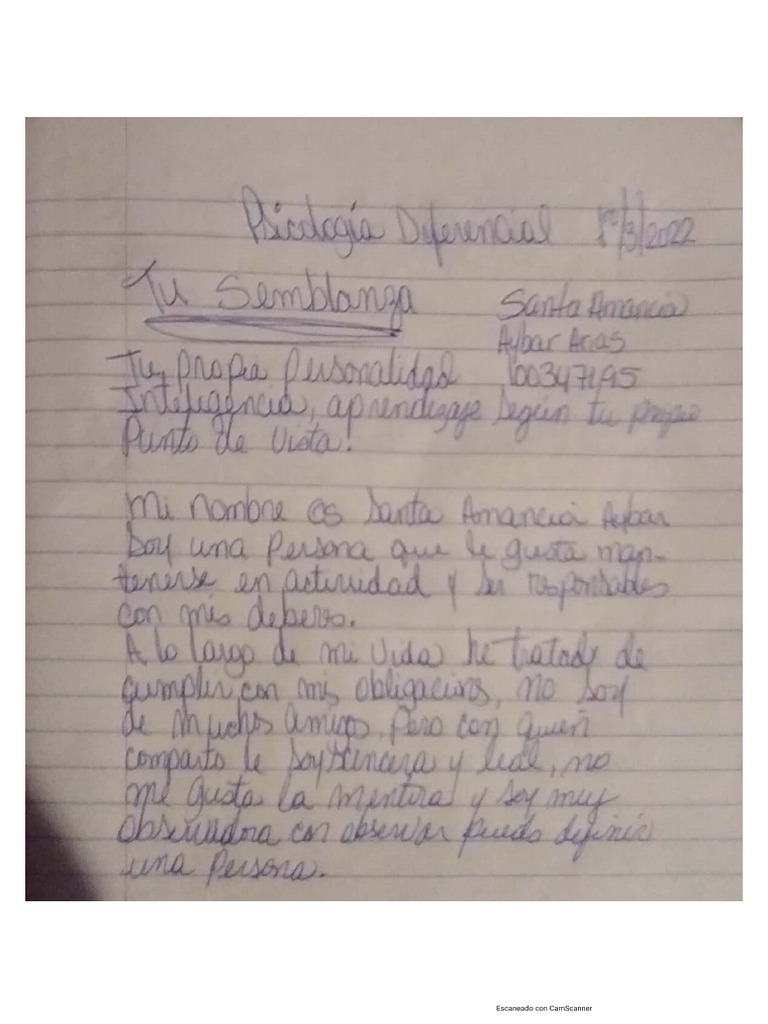 Psicología Diferencial /3/2022
Tu Semblanza
Santa Amancia
Aybar Arias
100347195
Tu propia personalidad
Inteligencia, aprendizaje según tu propio
Punto de vista.
Mi nombre es Santa Amancia Aybar
Soy una persona que le gusta man-
tenerse en actividad y ser responsables
con mis deberes.
A lo largo de mi vida he tratado de
cumplir con mis obligacions, no soy
de muchos amigos, pero con quien
comparto le soy sincera y leal, no
me gusta la mentira y soy muy
observadora con observar puedo definir
una persona.
Escaneado con CamScanner